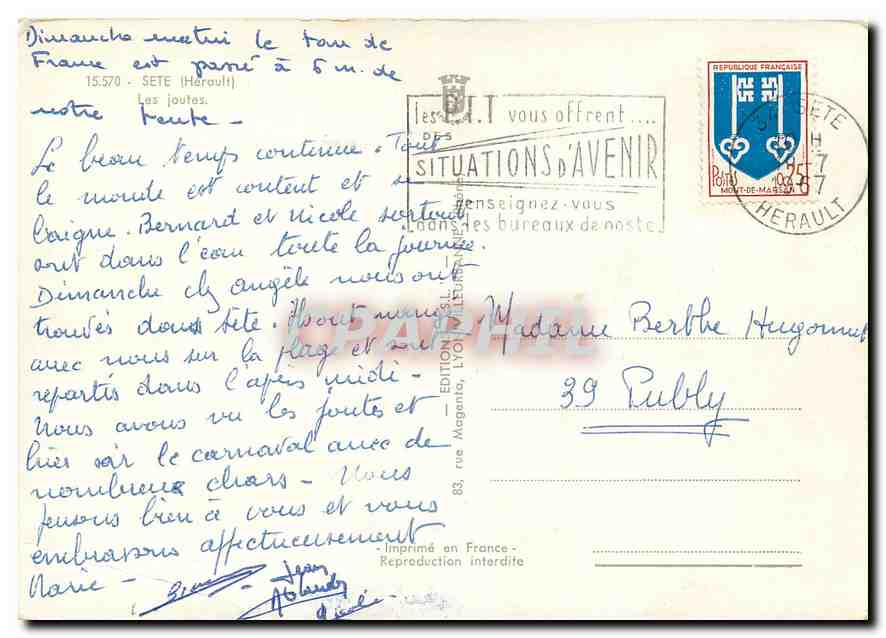 Dimanche matin le tour de
France est passé à 5 m. de
15.570 - SETE (Hérault)
Les joutes.
notre tente -
Le beau temps continue. Tout
le monde est content et se
baigne. Bernard et Nicole surtout
sont dans l'eau toute la journée.
Dimanche chez angèle nous ont
trouvés dans Sète. Ils ont mangé
avec nous sur la plage et sont
repartis dans l'après midi -
Nous avons vu les joutes et
hier soir le carnaval avec de
nombreux chars - Nous
pensons bien à vous et vous
embrassons affectueusement
Marie -
Jean
Nicole
les P.T.T vous offrent....
DES
SITUATIONS D'AVENIR
renseignez-vous
dans les bureaux de poste
REPUBLIQUE FRANÇAISE
Postes 0,05
MONT-DE-MARSAN
34 SETE
H
25-7
1967
HERAULT
Madame Berthe Hugonnet
39 Publy
EDITION S.L.
83, rue Magenta, LYON-VILLEURBANNE (Rhône)
- Imprimé en France -
Reproduction interdite
CPAPHIL